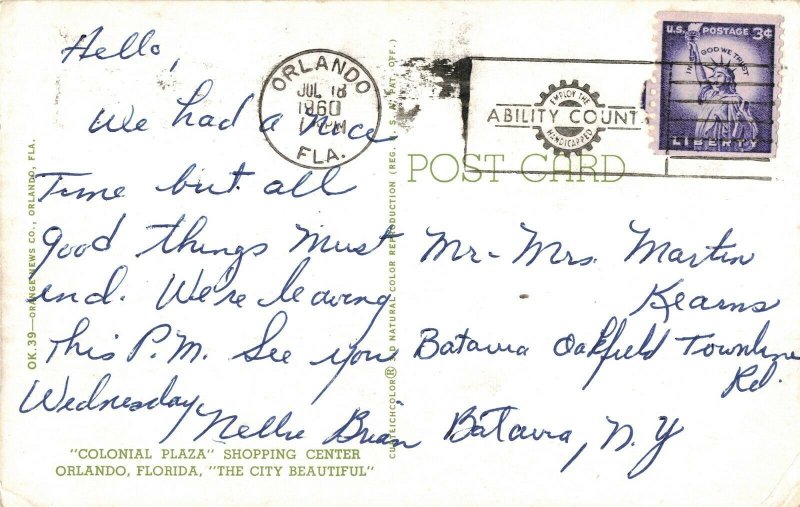 Hello,
We had a nice
Time but all
good things must
end. We're leaving
this P.M. See you
Wednesday
Nellie Brian
"COLONIAL PLAZA" SHOPPING CENTER
ORLANDO, FLORIDA, "THE CITY BEAUTIFUL"
OK.39—ORANGE NEWS CO., ORLANDO, FLA.
NATURAL COLOR REPRODUCTION (REG. U.S. PAT. OFF.)
ORLANDO
JUL 18
1960
PM
FLA.
EMPLOY THE
ABILITY COUNT
HANDICAPPED
POST CARD
U.S. POSTAGE 3¢
IN GOD WE TRUST
LIBERTY
Mr-Mrs. Martin
Kearns
Batavia Oakfield Townline
Rd.
Batavia, N.Y